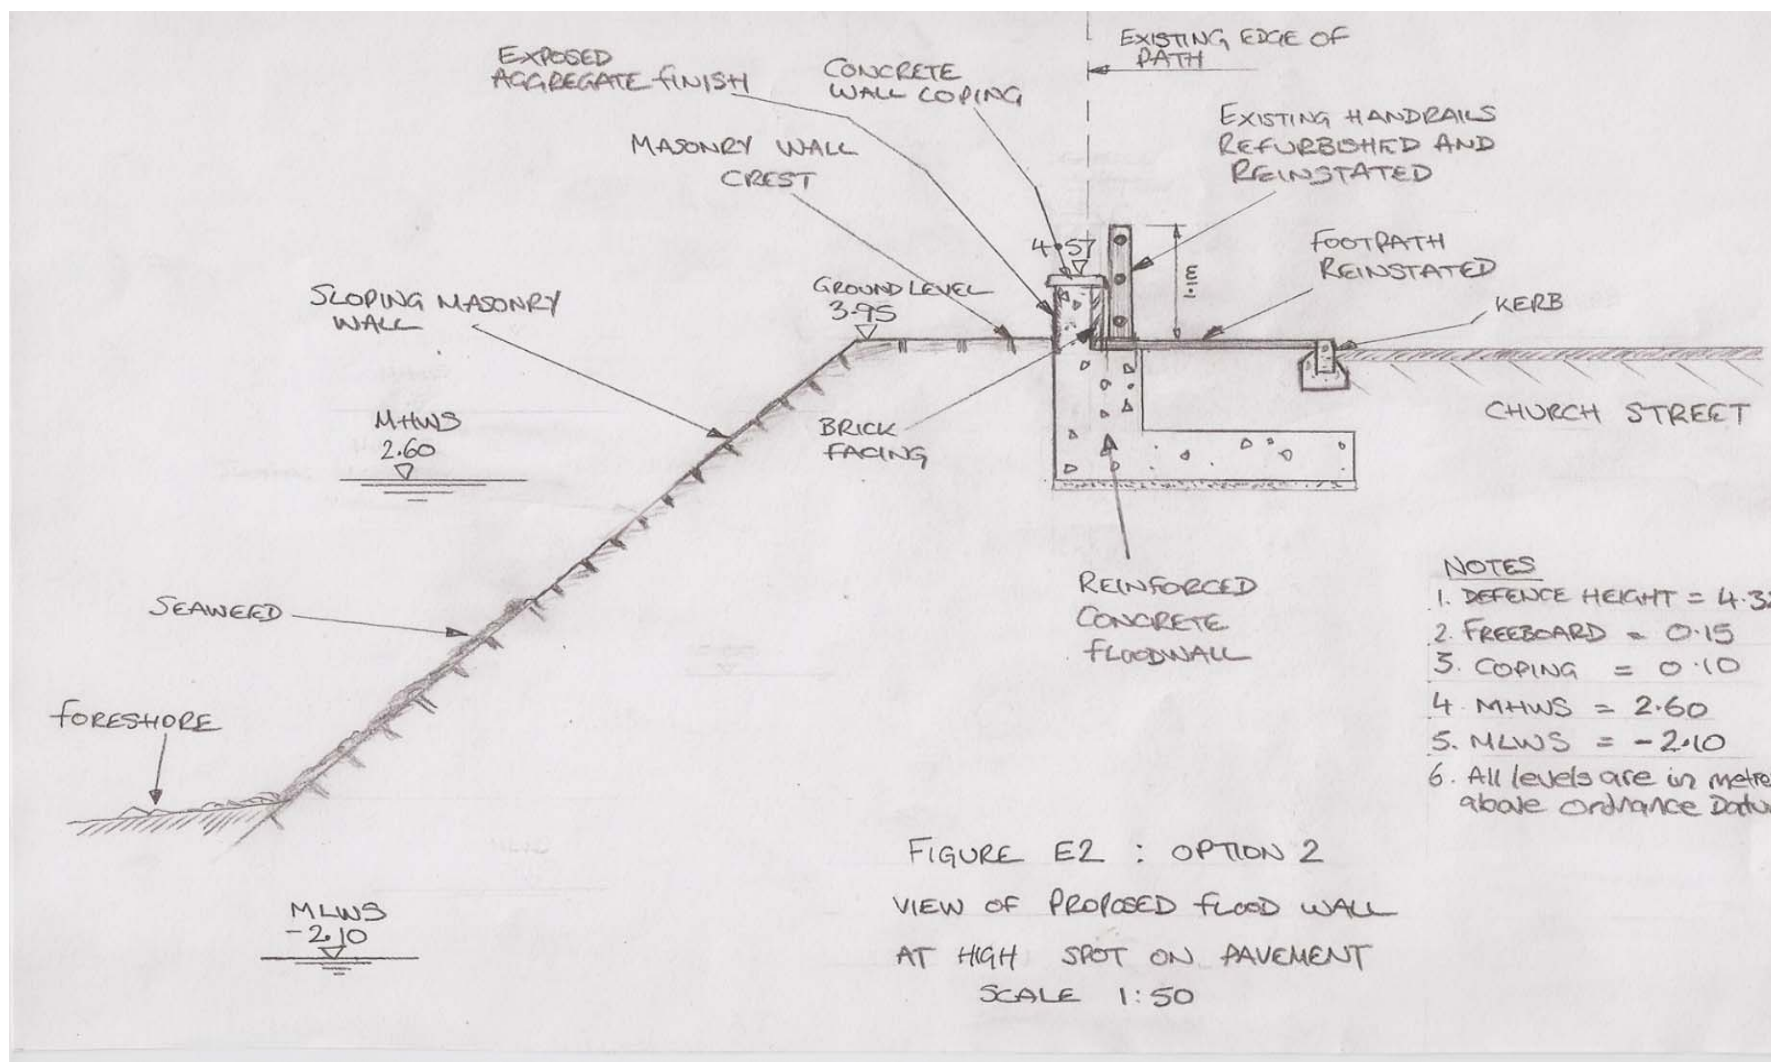 EXPOSED
AGGREGATE FINISH
CONCRETE
WALL COPING
EXISTING EDGE OF
PATH
MASONRY WALL
CREST
EXISTING HANDRAILS
REFURBISHED AND
REINSTATED
4.57
1.1m
FOOTPATH
REINSTATED
KERB
GROUND LEVEL
3.95
SLOPING MASONRY
WALL
MHWS
2.60
BRICK
FACING
CHURCH STREET
SEAWEED
REINFORCED
CONCRETE
FLOODWALL
FORESHORE
NOTES
1. DEFENCE HEIGHT = 4.32
2. FREEBOARD = 0.15
3. COPING = 0.10
4. MHWS = 2.60
5. MLWS = -2.10
6. All levels are in metre
above Ordnance Datu
MLWS
-2.10
FIGURE E2 : OPTION 2
VIEW OF PROPOSED FLOOD WALL
AT HIGH SPOT ON PAVEMENT
SCALE 1:50